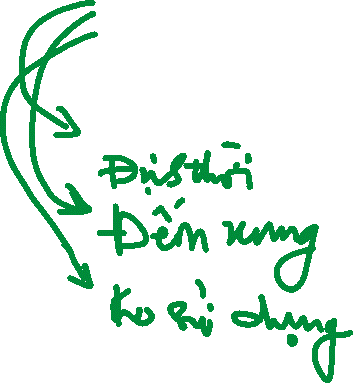 Định thời
Đếm xung
Ko sử dụng